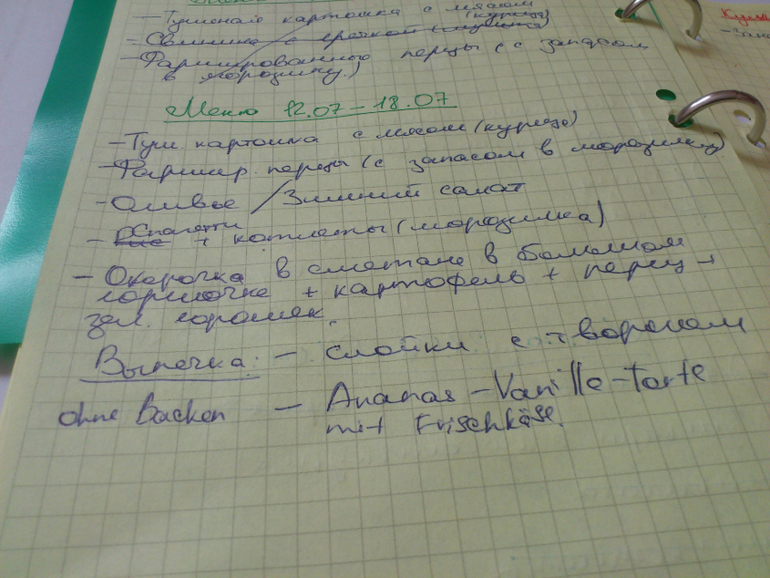 - Тушеная картошка с мясом
(курица)
- Свинина с гречкой
- Фаршированного перцы (с запасом
в морозилку.)
Меню 12.07 – 18.07
- Туш картошка с мясом (курица)
- Фаршир. перцы (с запасом в морозилку)
- Оливье / Зимний салат
- Спагетти + котлеты (морозилка)
- Окорочка в сметане в большом
горшочке + картофель + перец +
зел. горошек.
Выпечка: - слойки с творогом
ohne Backen - Ananas-Vanille-Torte
mit Frischkäse.